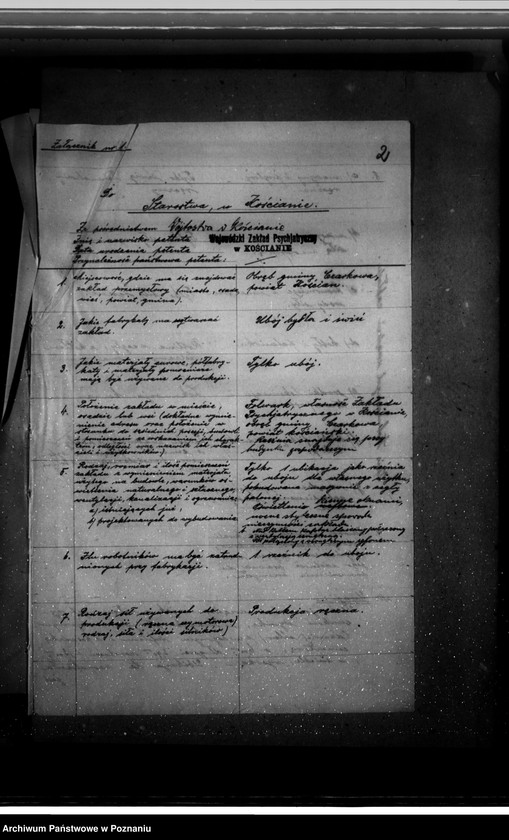 Załącznik nr 1.
2
Do
Starostwa, w Kościanie.
Za pośrednictwem Wójtostwa w Kościanie
Imię i nazwisko petenta Wojewódzki Zakład Psychjatryczny
Data urodzenia petenta w KOŚCIANIE
Przynależność państwowa petenta:
1. Miejscowość, gdzie ma się znajdować
zakład przemysłowy (miasto, osada,
wieś, powiat, gmina).
Obręb gminy, Czarkowa,
powiat Kościan.
2. Jakie fabrykaty ma wytwarzać
zakład.
Ubój bydła i świń
3. Jakie materjały surowe, półfabry-
katy i materjały pomocnicze
mają być używane do produkcji.
Tylko ubój.
4. Położenie zakładu w mieście,
osadzie lub wsi (dokładne wymie-
nienie adresu oraz położenie w
stosunku do sąsiednich posesji, budowli
i pomieszczeń ze wskazaniem ich
odległości oraz nazwisk ich właś-
cicieli i użytkowników)
Folwark, własność Zakładu
Psychjatrycznego w Kościanie,
obręb gminy Czarkowa
powiat kościański.
Rzeźnia znajduje się przy
budynku gospodarczym
5. Rodzaj, rozmiar i ilość pomieszczeń
zakładu z wymienieniem materjału
użytego na budowlę, warunków oś-
wietlenia naturalnego i sztucznego,
wentylacji, kanalizacji i ogrzewania
a) istniejących już,
b) projektowanych do wybudowania
Tylko 1 ubikacja jako rzeźnia
do uboju dla własnego użytku,
wybudowana z cegły
palonej.
6. Ilu robotników ma być zatrud-
nionych przy fabrykacji.
1 rzeźnik do uboju.
7. Rodzaj sił używanych do
produkcji (ręczna czy motorowa)
rodzaj, siła i ilość silników)
Produkcja ręczna.
Archiwum Państwowe w Poznaniu